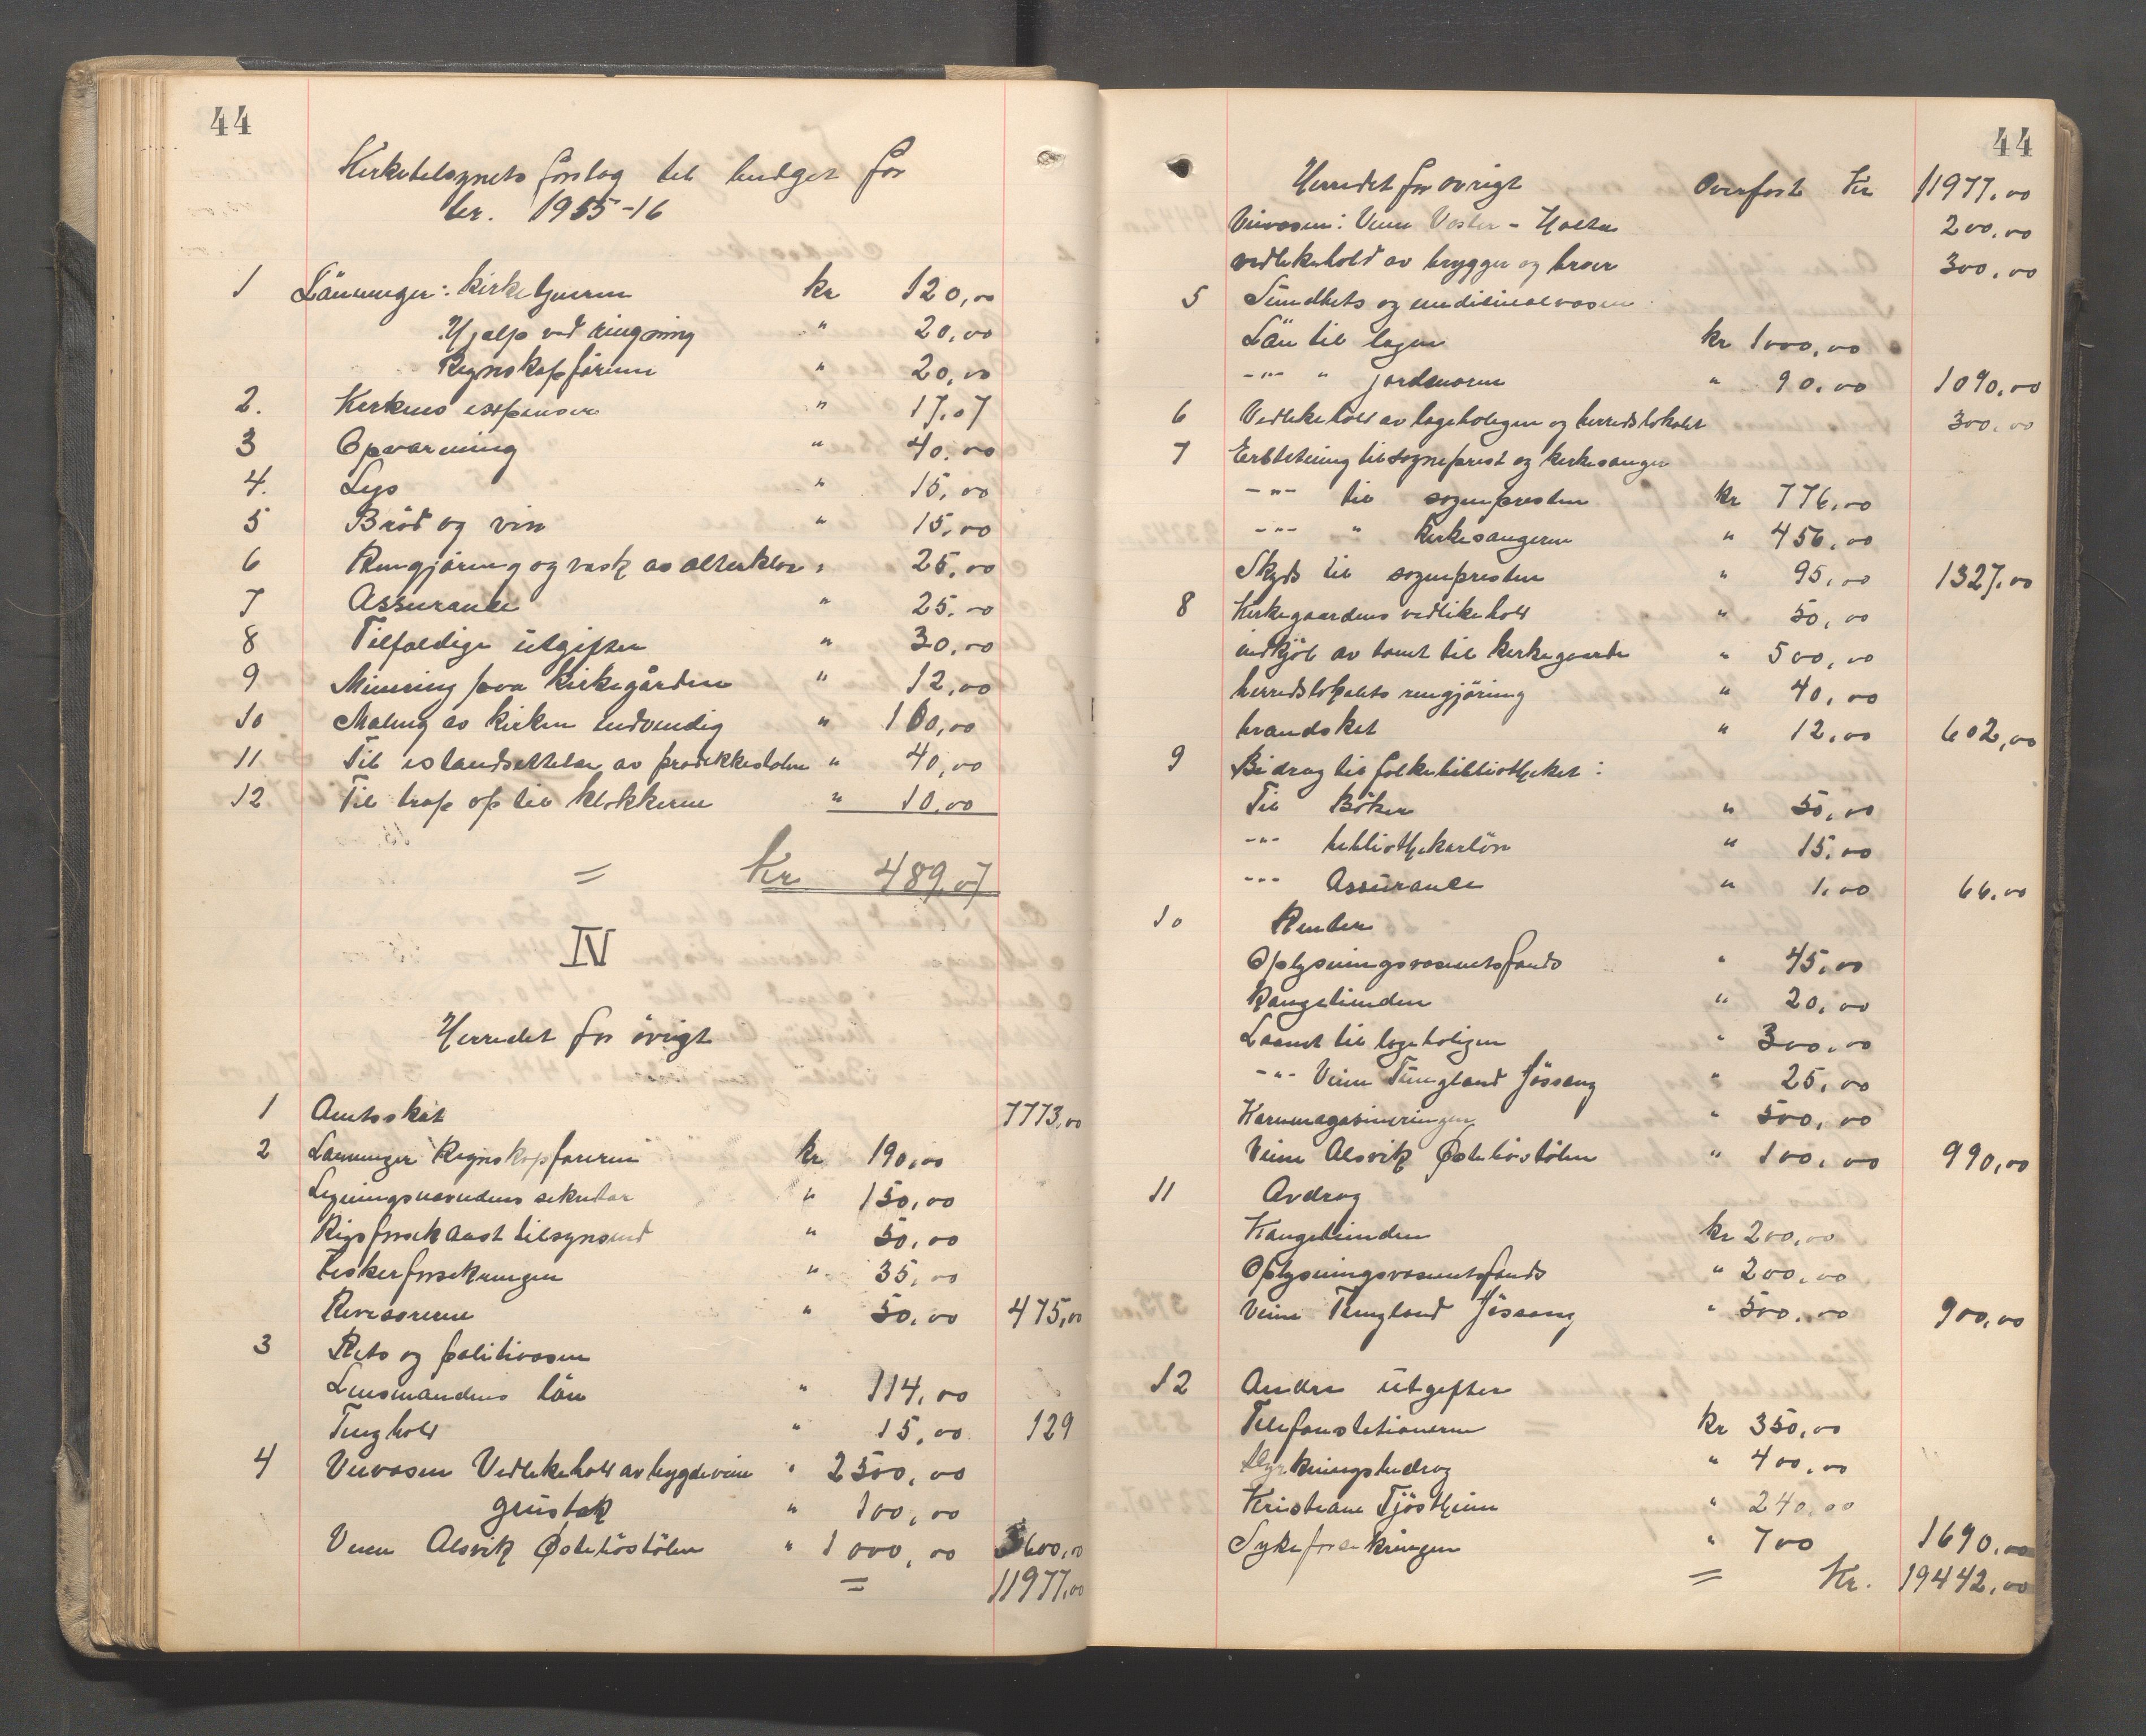 44
Kirketilsynets forslag til budget for
ter. 1915-16
1 Lönninger: kirketjeneren kr 120,00
Hjælp ved ringning " 20,00
Regnskapförsen " 20,00
2. Kirkens expenser " 17,07
3 Opvarming " 40,00
4. Lys " 15,00
5 Bröd og vin " 15,00
6 Rengjöring og vask av alterklær " 25,00
7 Assurance " 25,00
8 Tilfældige utgifter " 30,00
9 Minering paa kirkegården " 12,00
10 Maling av kirken indvendig " 100,00
11 Til istandsettelse av prædikkestolen " 40,00
12 Til trap op til klokkerne " 10,00
= Kr 489,07
IV
Herredet for övrigt
1 Amtsskat 7773,00
2 Lønninger Regnskapføreren kr 190,00
Ligningsnævndens sekretær " 150,00
Rigsforsikranst tilsynsmd " 50,00
Fiskerforsikringen " 35,00
Revisorerne " 50,00 475,00
3 Rets og politivæsen
Lensmandens lön " 114,00
Tinghold " 15,00 129
4 Veivæsen Vedlikehold av bygdeveie " 2500,00
grustak " 100,00
Veien Alsvik Østhusstölen " 1000,00 3600,00
= 11977,00
44
Herredet for övrigt Overført Kr 11977,00
Veivæsen: Veien Voster - Halten 200,00
vedlikehold av brygger og broer 300,00
5 Sundhets og medisinalvæsen
Lön til lægen kr 1000,00
-"- " jordmoren " 90,00 1090,00
6 Vedlikehold av lægeboligen og herredslokalet 300,00
7 Erstatning til sogneprest og kirkesanger
-"- til sognepresten kr 776,00
-"- " kirkesangeren " 456,00
Skyds til sognepresten " 95,00 1327,00
8 Kirkegaardens vedlikehold " 50,00
indkjöb av tomt til kirkegaarde " 500,00
herredslokalets rengjöring " 40,00
brandskat " 12,00 602,00
9 Bidrag til folkebibliotheket:
Til Böker " 50,00
-"- bibliothekarlön " 15,00
-"- Assurance " 1,00 66,00
10 Renter
Oplysningsvæsenets fonds " 45,00
Kongetienden " 20,00
Laanet til lægeboligen " 300,00
-"- Veien Tungland Jössang " 25,00
Kornmagasineringen " 500,00
Veien Alsvik Østhusstölen " 100,00 990,00
11 Avdrag
Kongetienden kr 200,00
Oplysningsvæsenets fonds " 200,00
Veien Tungland Jössang " 500,00 900,00
12 Andre utgifter
Telefonstationerne kr 350,00
Dyrkningsbidrag " 400,00
Kristiane Tjöstheim " 240,00
Sykeforsikringen " 700 1690,00
= Kr. 19442,00